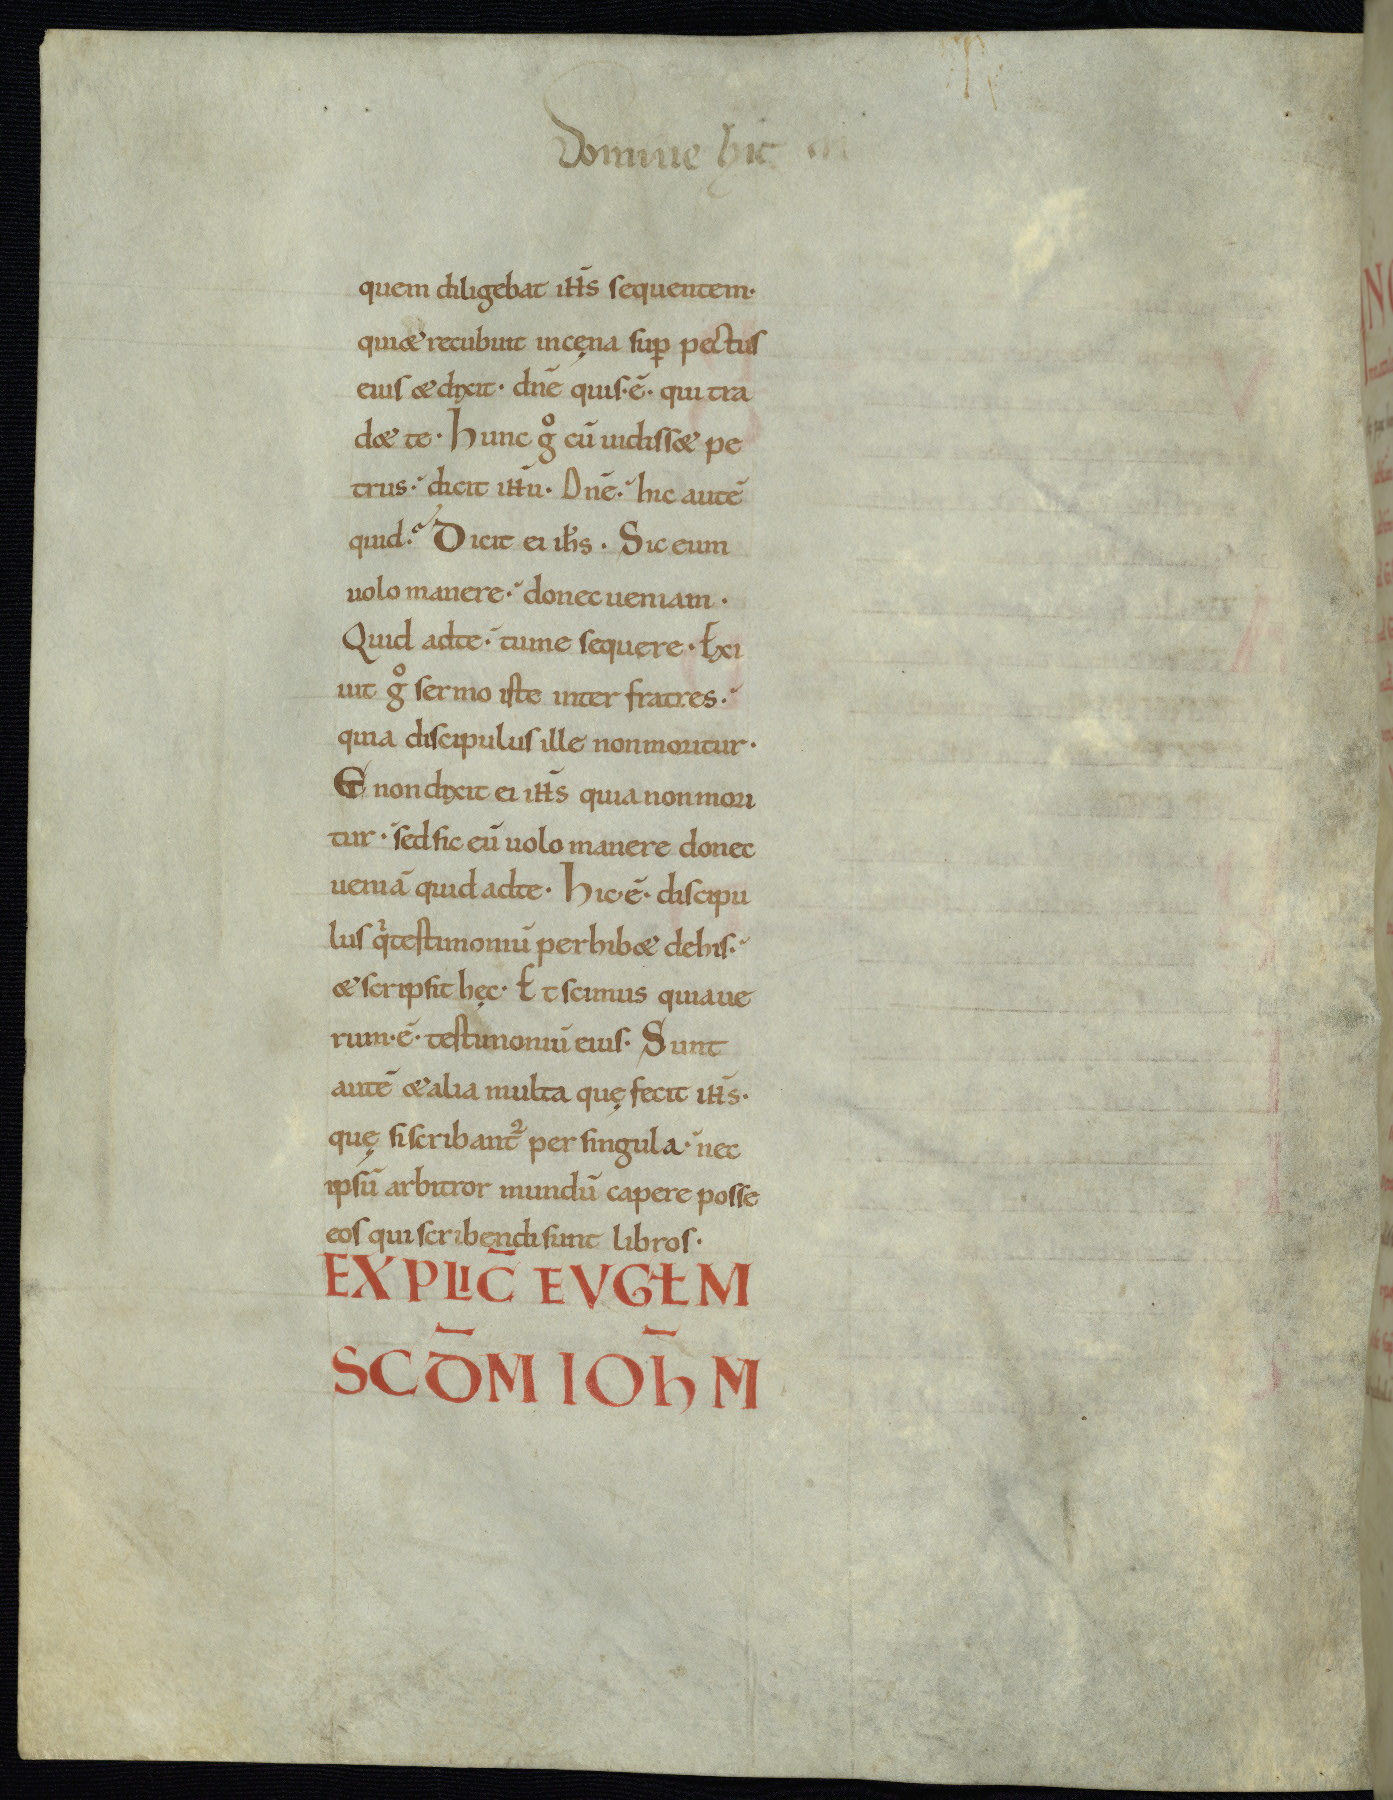 Domine hic
quem diligebat ihs̄ sequentem·
qui & recubuit in cęna sup̄ pectus
eius & dixit· dn̄e quis·ē· qui tra
d& te· Hunc g̊ cū uidiss& pe
trus· dicit ihū· Dn̄e· hic autē
quid· Dicit ei ih̄s· Sic eum
uolo manere· donec ueniam·
Quid ad te· tu me sequere· Exi
uit g̊ sermo iste inter fratres·
quia discipulus ille non moritur·
Et non dixit ei ihs̄ quia non mori
tur· sed sic eū uolo manere donec
ueniā quid ad te· Hic·ē· discipu
lus qͥ testimoniū perhib& de his·
& scripsit hęc· Et scimus quia ue
rum·ē· testimoniū eius· Sunt
autē & alia multa quę fecit ihs̄·
quę si scribant᷑ per singula· nec
ipsū arbitror mundū capere posse
eos qui scribendi sunt libros·
EXPLIC̄ EVGĿM
SCD̄M IOH̄M